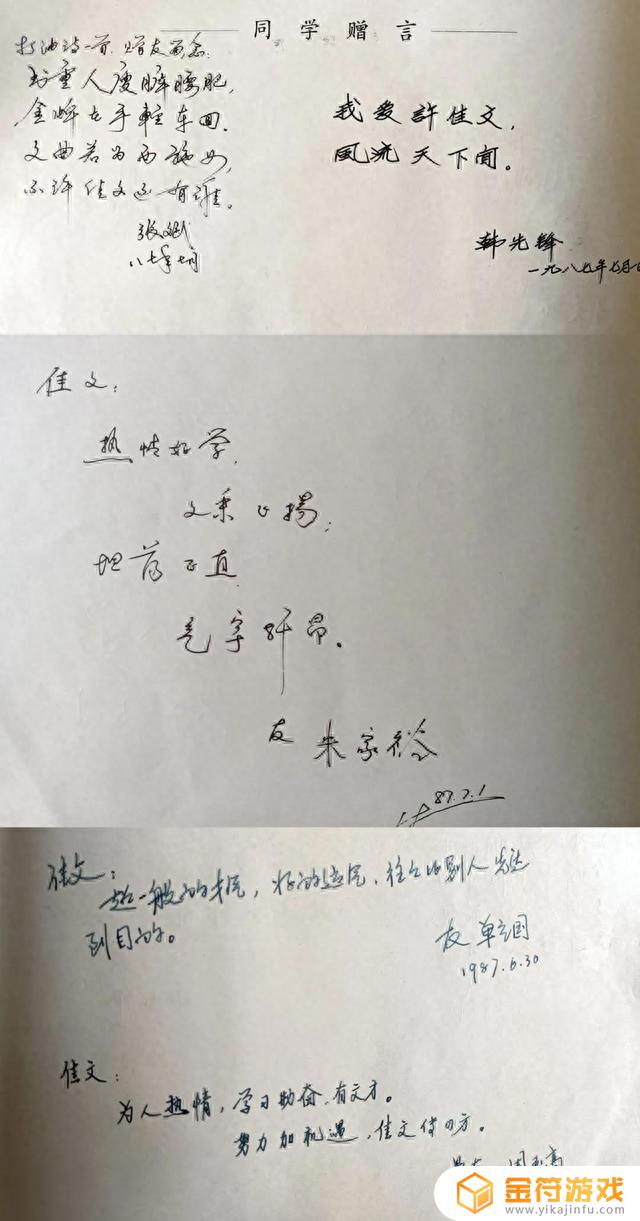 同学赠言
打油诗一首，赠友留念：
人瘦
金 在手 车回，
文曲若为西施女，
不许佳文还有谁。
张斌
八七年七月
我爱許佳文，
风流天下闻。
韩先锋
一九八七年七月
佳文：
热情好学，
文采飞揚；
坦荡正直，
气宇轩昂。
友 朱家
87.7.1
佳文：
超一般的才气，好的运气，往往比别人先达
到目的。
友 单立国
1987.6.30
佳文：
为人热情，学习勤奋，有文才。
努力加机遇，佳文传四方。
金符游戏
www.yikajinfu.com